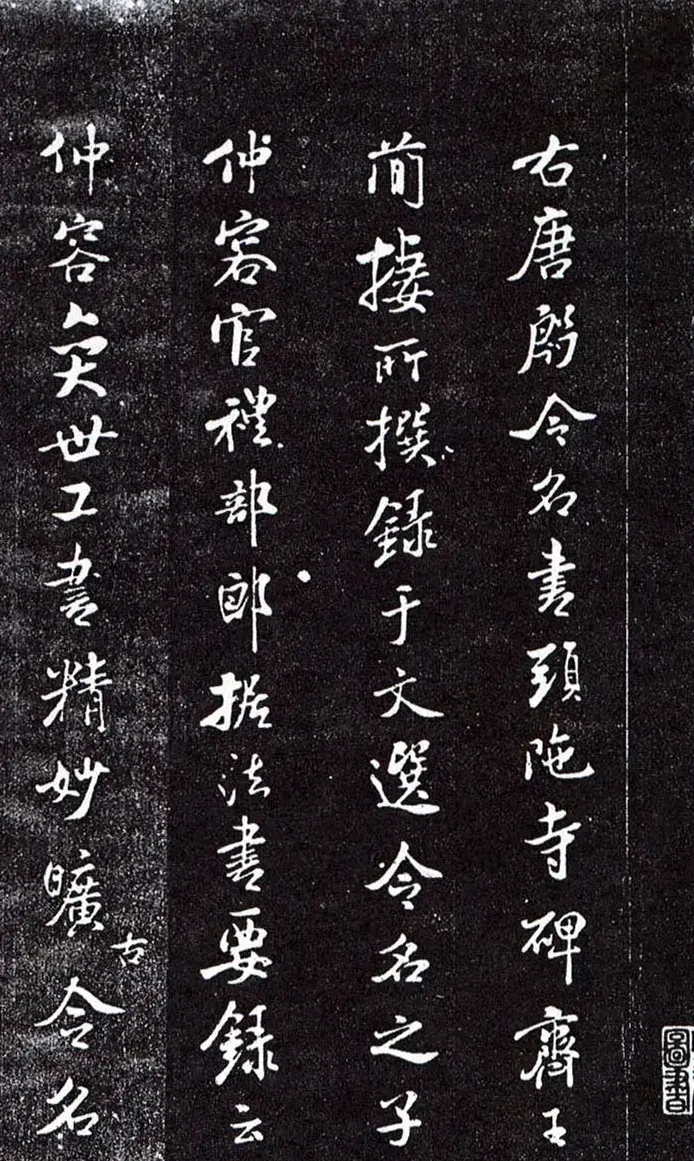 右唐殷令名書頭陁寺碑齊王
簡棲所撰録于文選令名之子
仲容官禮部郎据法書要録云
仲容奕世工書精妙曠古令名
圖書